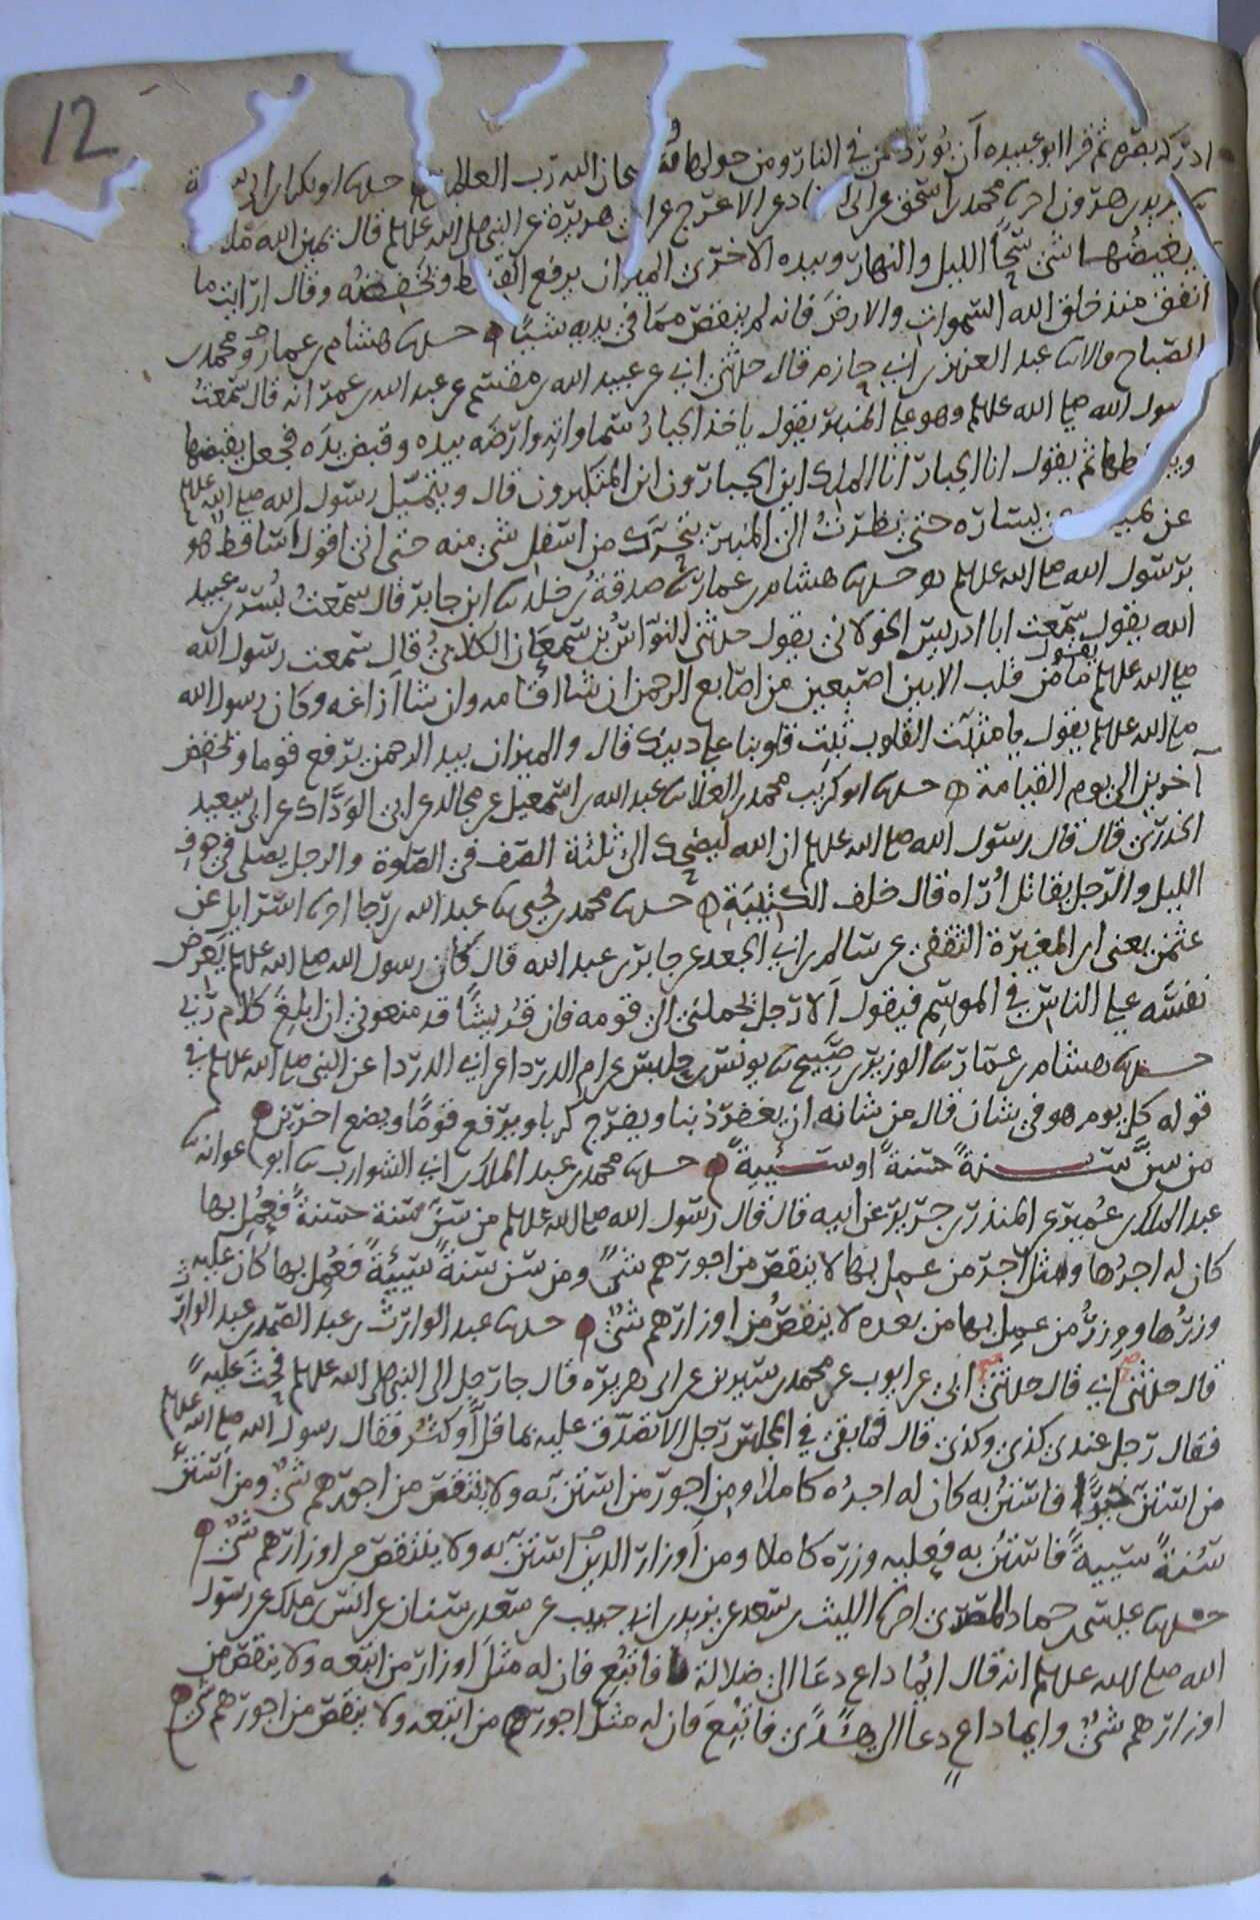 12
ادركه بصره ثم قرا ابو عبيده ان بورك من في النار ومن حولها وسبحان الله رب العالمين حدثنا ابو بكر بن ابي
يزيد بن هرون اخبرنا محمد بن اسحق عن ابي الزناد عن الاعرج عن ابي هريرة عن النبي صلى الله عليه وسلم قال يمين الله ملا
يغيضها شئ سحا الليل والنهار وبيده الاخرى الميزان يرفع القسط ويخفضه وقال ارايت ما
انفق منذ خلق الله السموات والارض فانه لم ينقص مما في يديه شيئا حدثنا هشام بن عمار ومحمد بن
الصباح قالا حدثنا عبد العزيز بن ابي حازم قال حدثني ابي عن عبيد الله بن مقسم عن عبد الله بن عمر انه قال سمعت
رسول الله صلى الله عليه وسلم وهو على المنبر يقول ياخذ الجبار سماواته وارضه بيده وقبض يده فجعل يقبضها
ويبسطها ثم يقول انا الجبار انا الملك اين الجبارون اين المتكبرون قال ويتميل رسول الله صلى الله عليه وسلم
عن يمينه وعن يساره حتى نظرت الى المنبر يتحرك من اسفل شئ منه حتى اني اقول اساقط هو
برسول الله صلى الله عليه وسلم حدثنا هشام بن عمار ثنا صدقة بن خلد ثنا ابن جابر قال سمعت بسر بن عبيد
الله يقول سمعت ابا ادريس الخولاني يقول حدثني النواس بن سمعان الكلابي قال سمعت رسول الله
صلى الله عليه وسلم يقول ما من قلب الا بين اصبعين من اصابع الرحمن ان شا اقامه وان شا ازاغه وكان رسول الله
صلى الله عليه وسلم يقول يا مثبت القلوب ثبت قلوبنا على دينك قال والميزان بيد الرحمن يرفع قوما ويخفض
آخرين الى يوم القيامة حدثنا ابو كريب محمد بن العلا ثنا عبد الله بن اسمعيل عن مجالد عن ابي الوداك عن ابي سعيد
الخدري قال قال رسول الله صلى الله عليه وسلم ان الله ليضحك الى ثلثة الصف في الصلوة والرجل يصلي في جوف
الليل والرجل يقاتل اراه قال خلف الكتيبة حدثنا محمد بن يحيى ثنا عبد الله بن رجا اخبرنا اسرايل عن
عثمن يعني ابن المغيرة الثقفي عن سالم بن ابي الجعد عن جابر بن عبد الله قال كان رسول الله صلى الله عليه وسلم يعرض
نفسه على الناس في الموسم فيقول الا رجل يحملني الى قومه فان قريشا قد منعوني ان ابلغ كلام ربي
حدثنا هشام بن عمار ثنا الوزير بن صبيح ثنا يونس بن حلبس عن ام الدردا عن ابي الدردا عن النبي صلى الله عليه وسلم في
قوله كل يوم هو في شان قال من شانه ان يغفر ذنبا ويفرج كربا ويرفع قوما ويضع اخرين
من سن سنة حسنة او سيئة حدثنا محمد بن عبد الملك بن ابي الشوارب ثنا ابو عوانه ثنا
عبد الملك بن عمير عن المنذر بن جرير عن ابيه قال قال رسول الله صلى الله عليه وسلم من سن سنة حسنة فعمل بها
كان له اجرها ومثل اجر من عمل بها لا ينقص من اجورهم شئ ومن سن سنة سيئة فعمل بها كان عليه
وزرها ووزر من عمل بها من بعده لا ينقص من اوزارهم شئ حدثنا عبد الوارث بن عبد الصمد بن عبد الوارث
قال حدثني ابي قال حدثني ابي عن ايوب عن محمد بن سيرين عن ابي هريرة قال جا رجل الى النبي صلى الله عليه وسلم فحث عليه
فقال رجل عندي كذى وكذى قال فما بقي في المجلس رجل الا تصدق عليه بما قل او كثر فقال رسول الله صلى الله عليه وسلم
من استن خيرا فاستن به كان له اجره كاملا ومن اجور من استن به ولا ينقص من اجورهم شئ ومن استن
سنة سيئة فاستن به فعليه وزره كاملا ومن اوزار الذين استن به ولا ينقص من اوزارهم شئ
حدثنا عيسى بن حماد المصري اخبرنا الليث بن سعد عن يزيد بن ابي حبيب عن سعد بن سنان عن انس بن ملك عن رسول
الله صلى الله عليه وسلم انه قال ايما داع دعا الى ضلالة فاتبع فان له مثل اوزار من اتبعه ولا ينقص من
اوزارهم شئ وايما داع دعا الى هدى فاتبع فان له مثل اجور من اتبعه ولا ينقص من اجورهم شئ